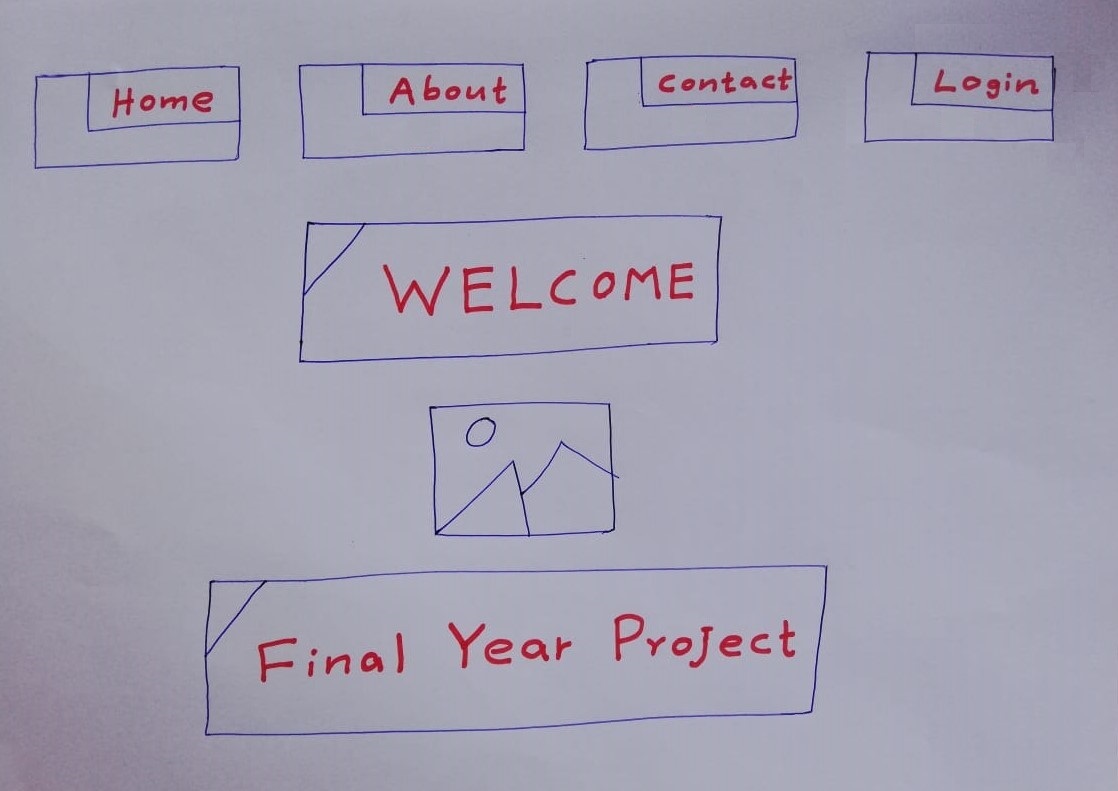 Home About Contact Login
WELCOME
Final Year Project